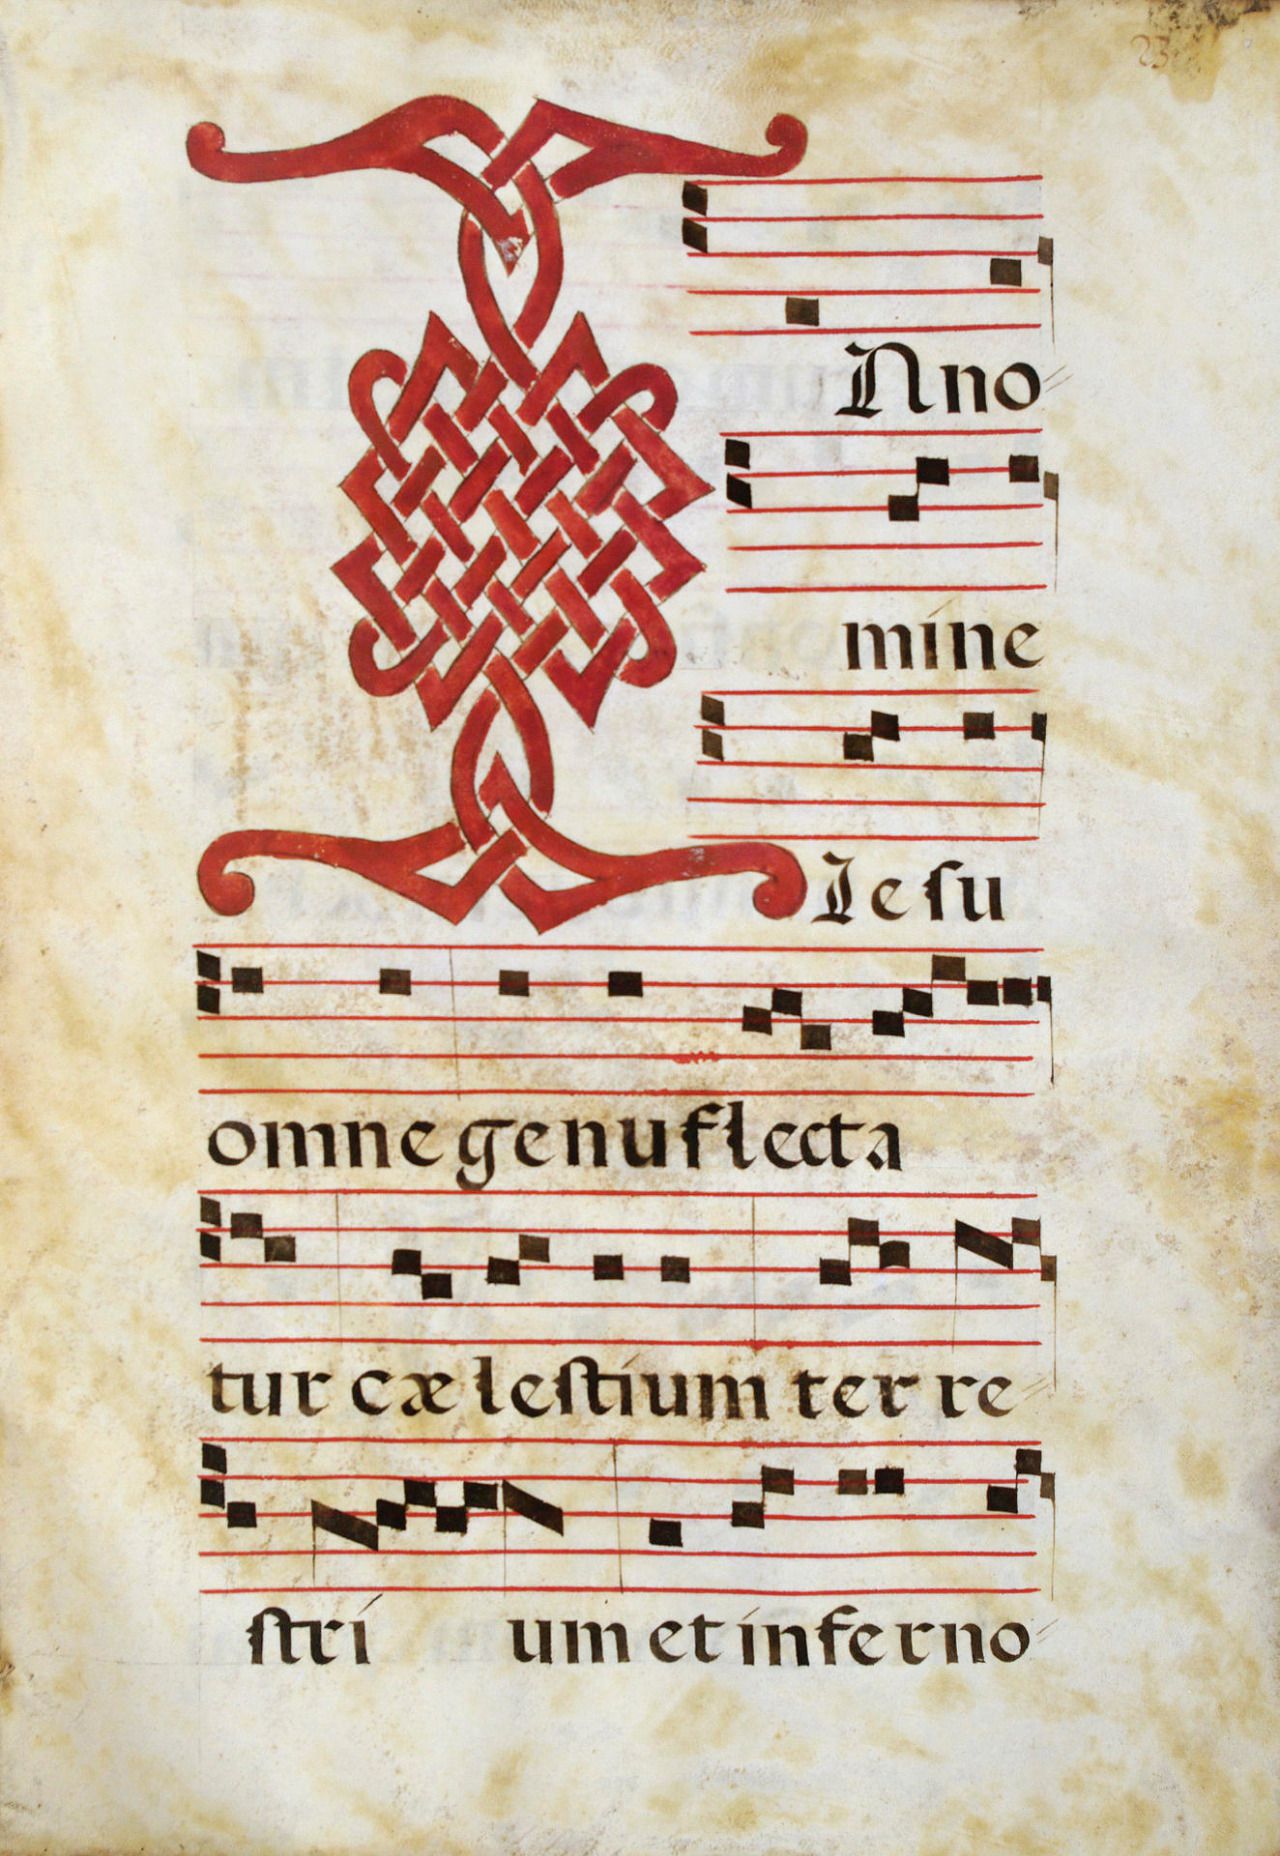 23
I
N no
míne
Iesu
omne genu flecta
tur cælestíum ter re
strí um et ínferno